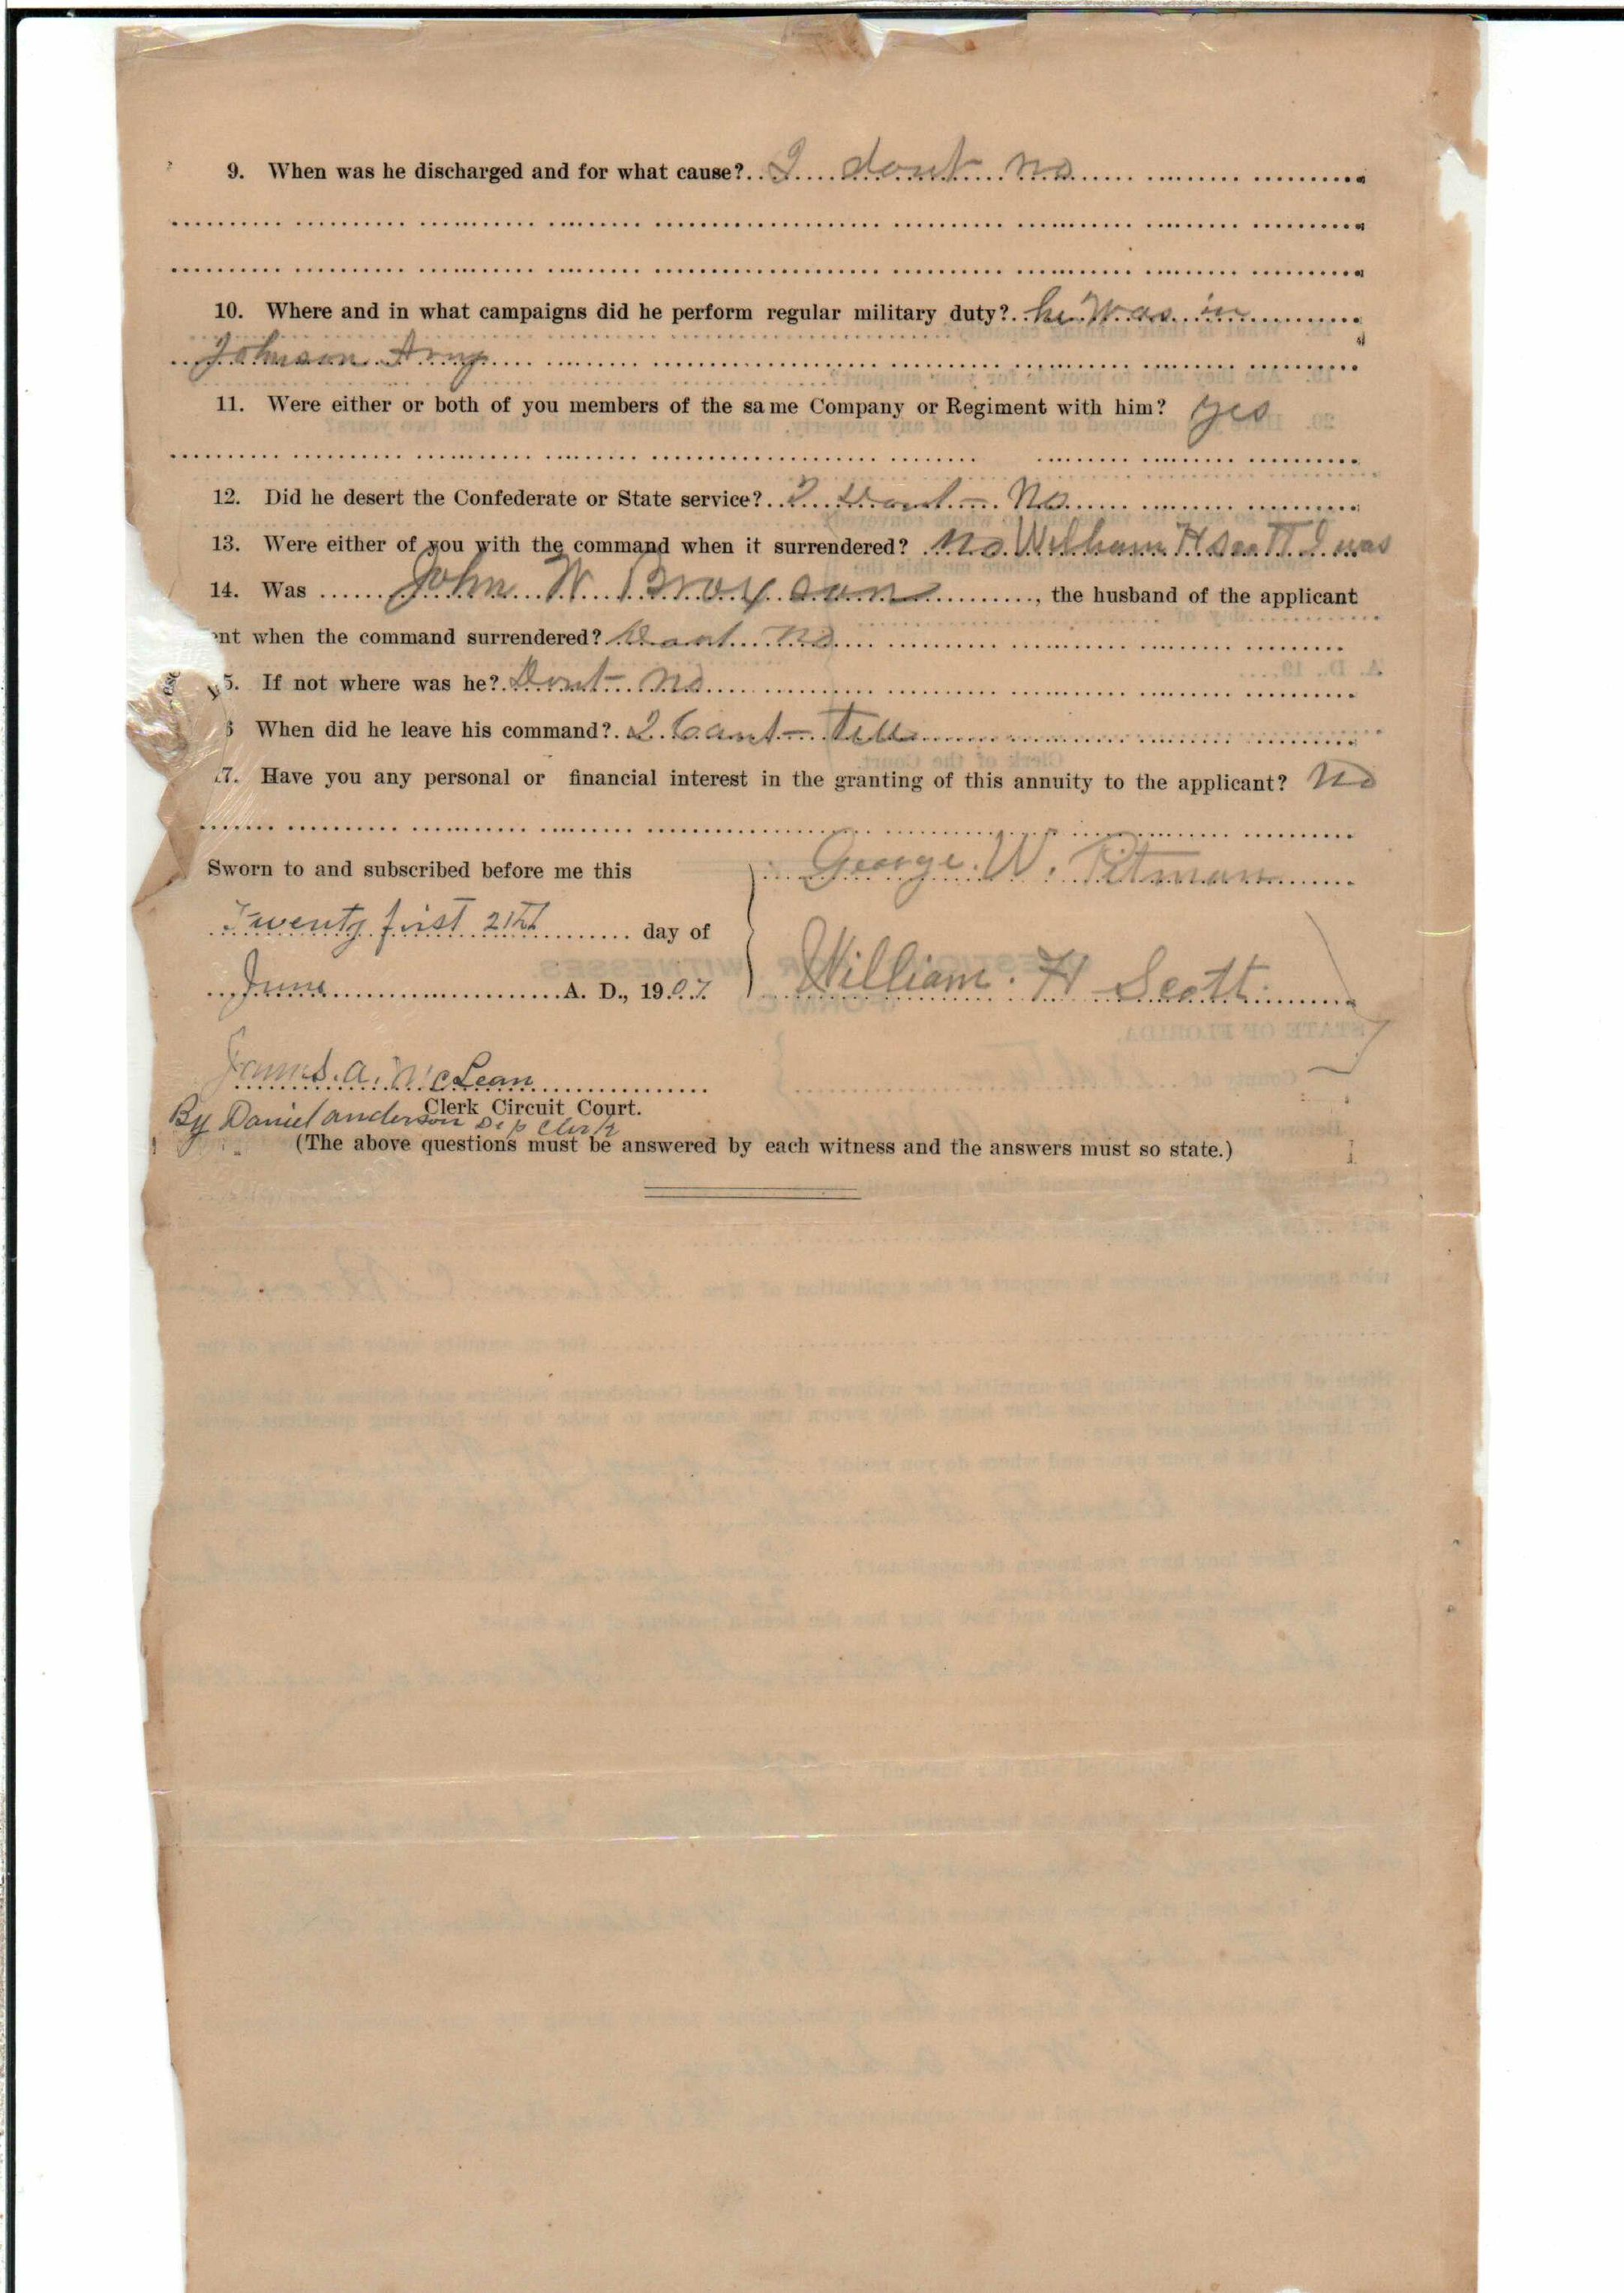 9. When was he discharged and for what cause? I dont no
10. Where and in what campaigns did he perform regular military duty? he Was in
Johnson Army
11. Were either or both of you members of the same Company or Regiment with him? yes
12. Did he desert the Confederate or State service? I Dont No
13. Were either of you with the command when it surrendered? No William H Scott I was
14. Was John W Broxson, the husband of the applicant
ent when the command surrendered? Dont no
5. If not where was he? Dont no
6 When did he leave his command? I Cant Tell
7. Have you any personal or financial interest in the granting of this annuity to the applicant? No
Sworn to and subscribed before me this
George. W. Pitman
Twenty first 21st day of
June A. D., 1907.
William. H Scott
James. A. McLean
Clerk Circuit Court.
By Daniel anderson Dep Clerk
(The above questions must be answered by each witness and the answers must so state.)